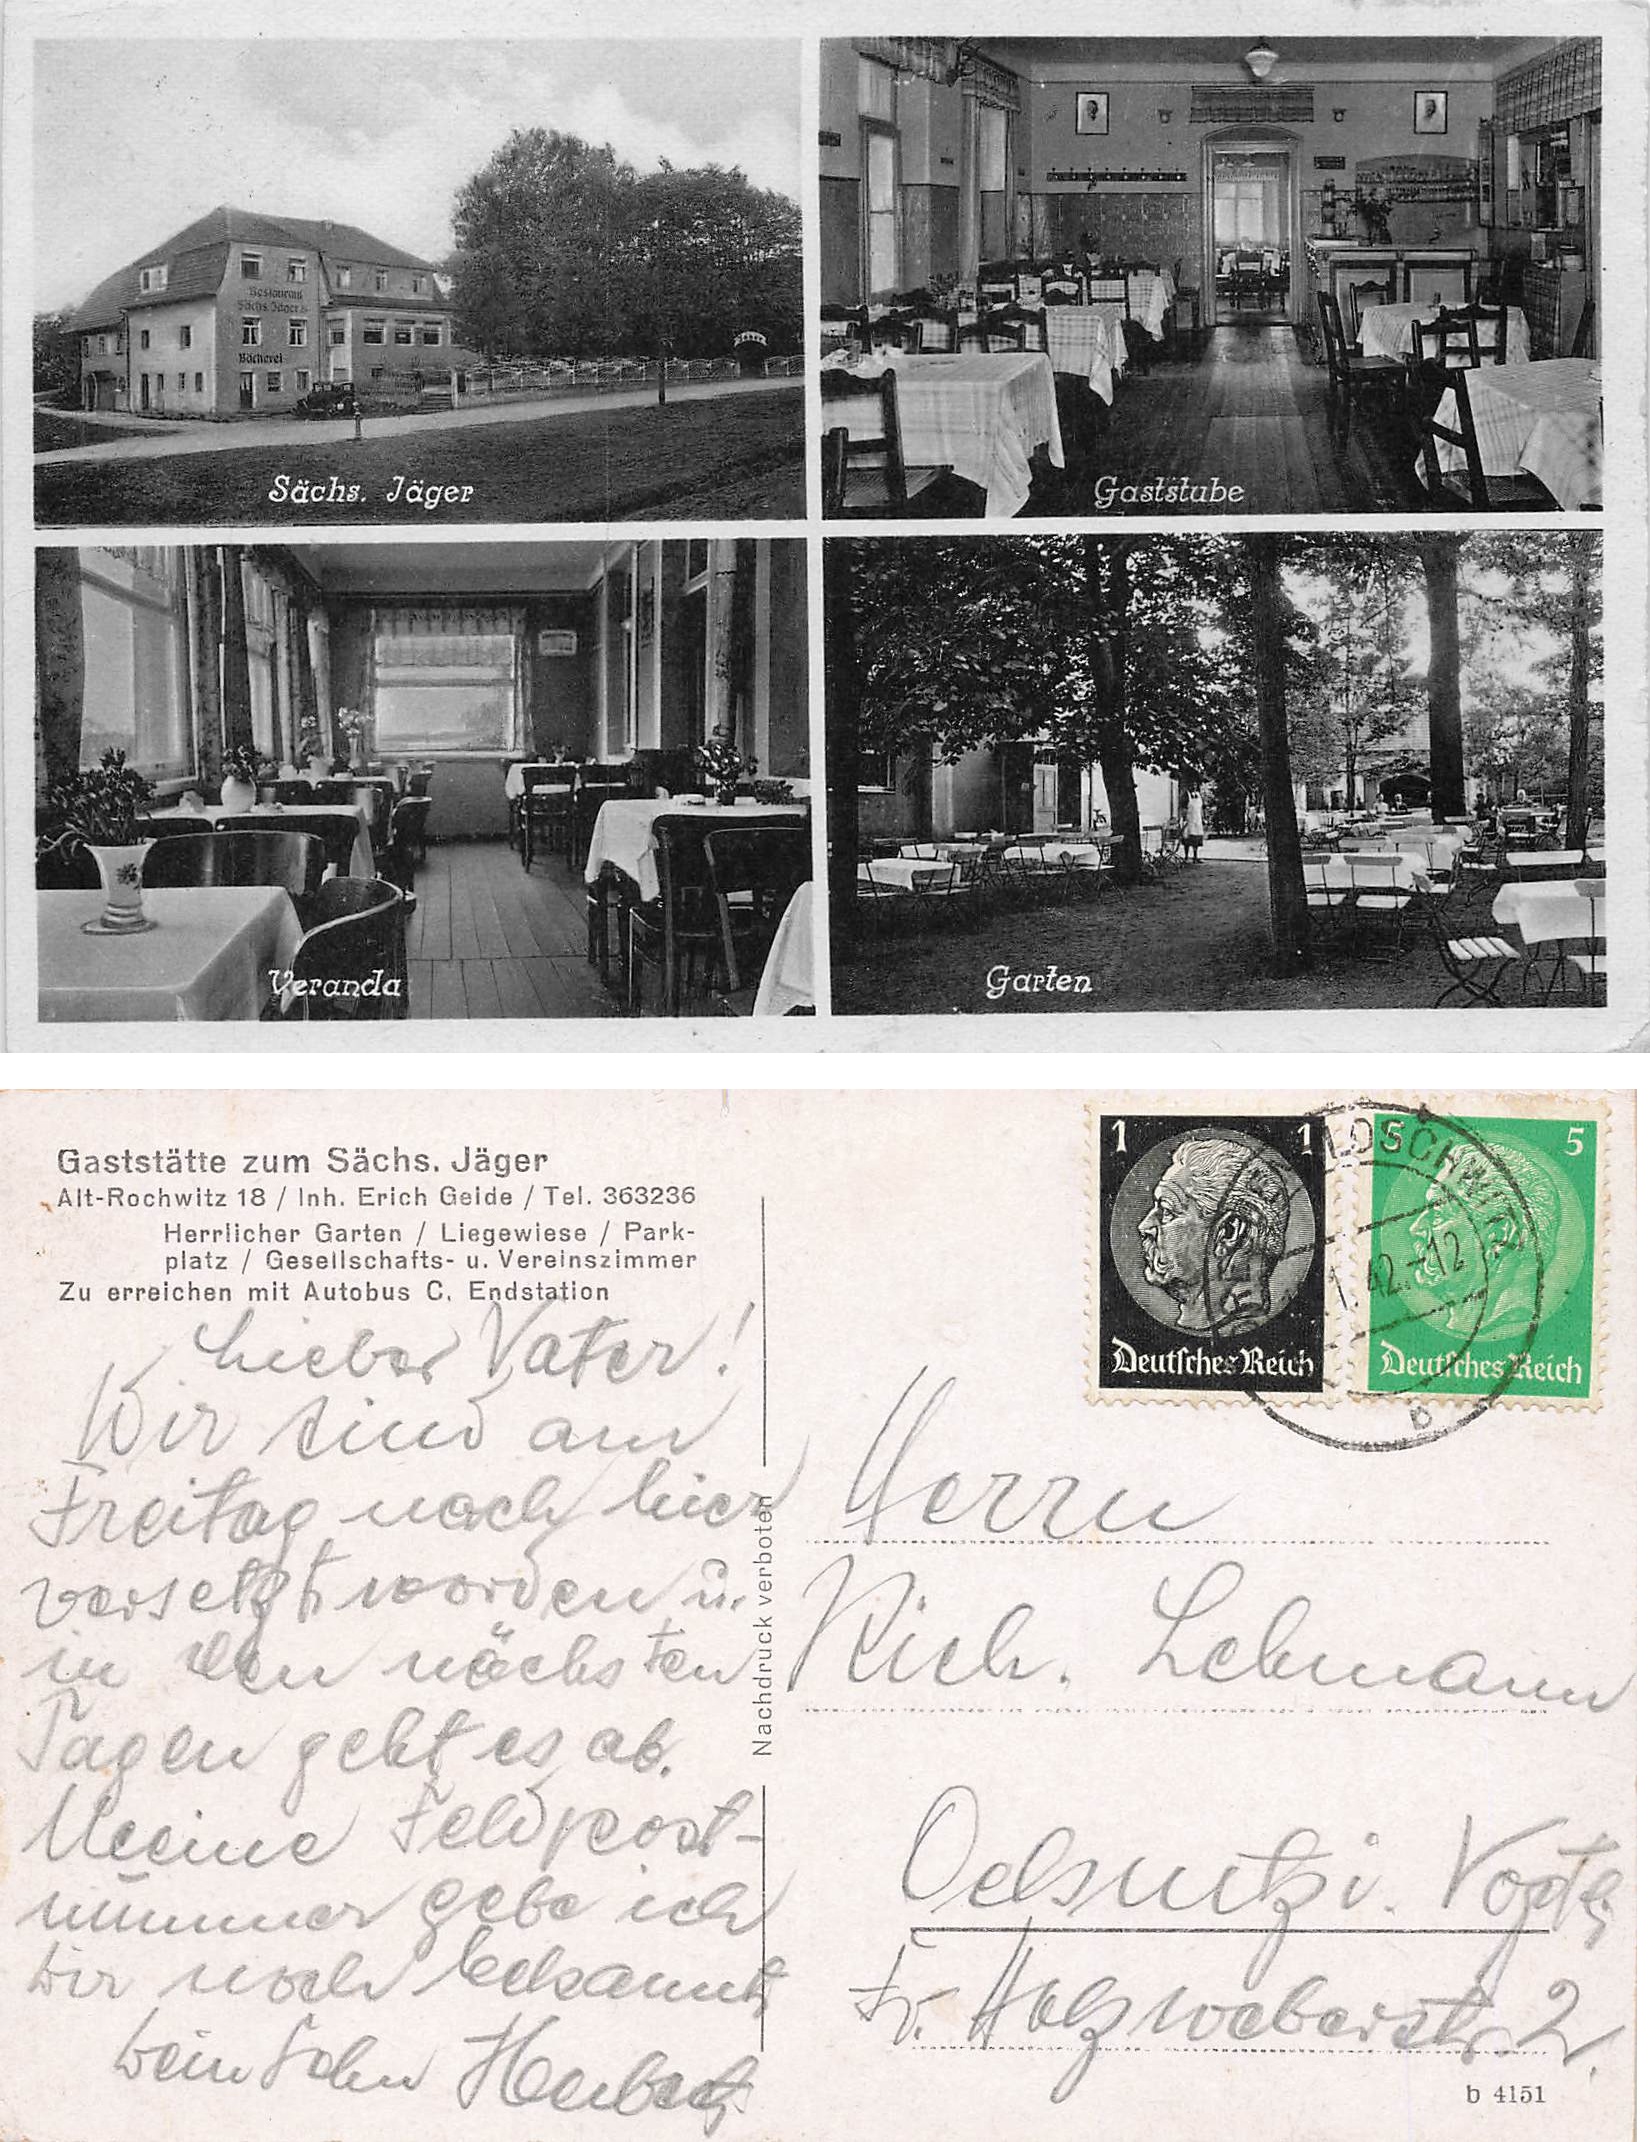 Restaurant
Sächs. Jäger
Bäckerei
Sächs. Jäger
Gaststube
Veranda
Garten
Gaststätte zum Sächs. Jäger
Alt-Rochwitz 18 / Inh. Erich Geide / Tel. 363236
Herrlicher Garten / Liegewiese / Park-
platz / Gesellschafts- u. Vereinszimmer
Zu erreichen mit Autobus C, Endstation
1 1
Deutsches Reich
5 5
Deutsches Reich
LOSCHWITZ
1.42.-12
b
Lieber Vater!
Wir sind am
Freitag nach hier
versetzt worden u.
in den nächsten
Tagen geht es ab.
Meine Feldpost-
nummer gebe ich
Dir noch bekannt
Dein Sohn Herbert
Nachdruck verboten
Herrn
Rich. Lehmann
Oelsnitz i. Vogtl.
Fr. Holzweberstr. 2.
b 4151